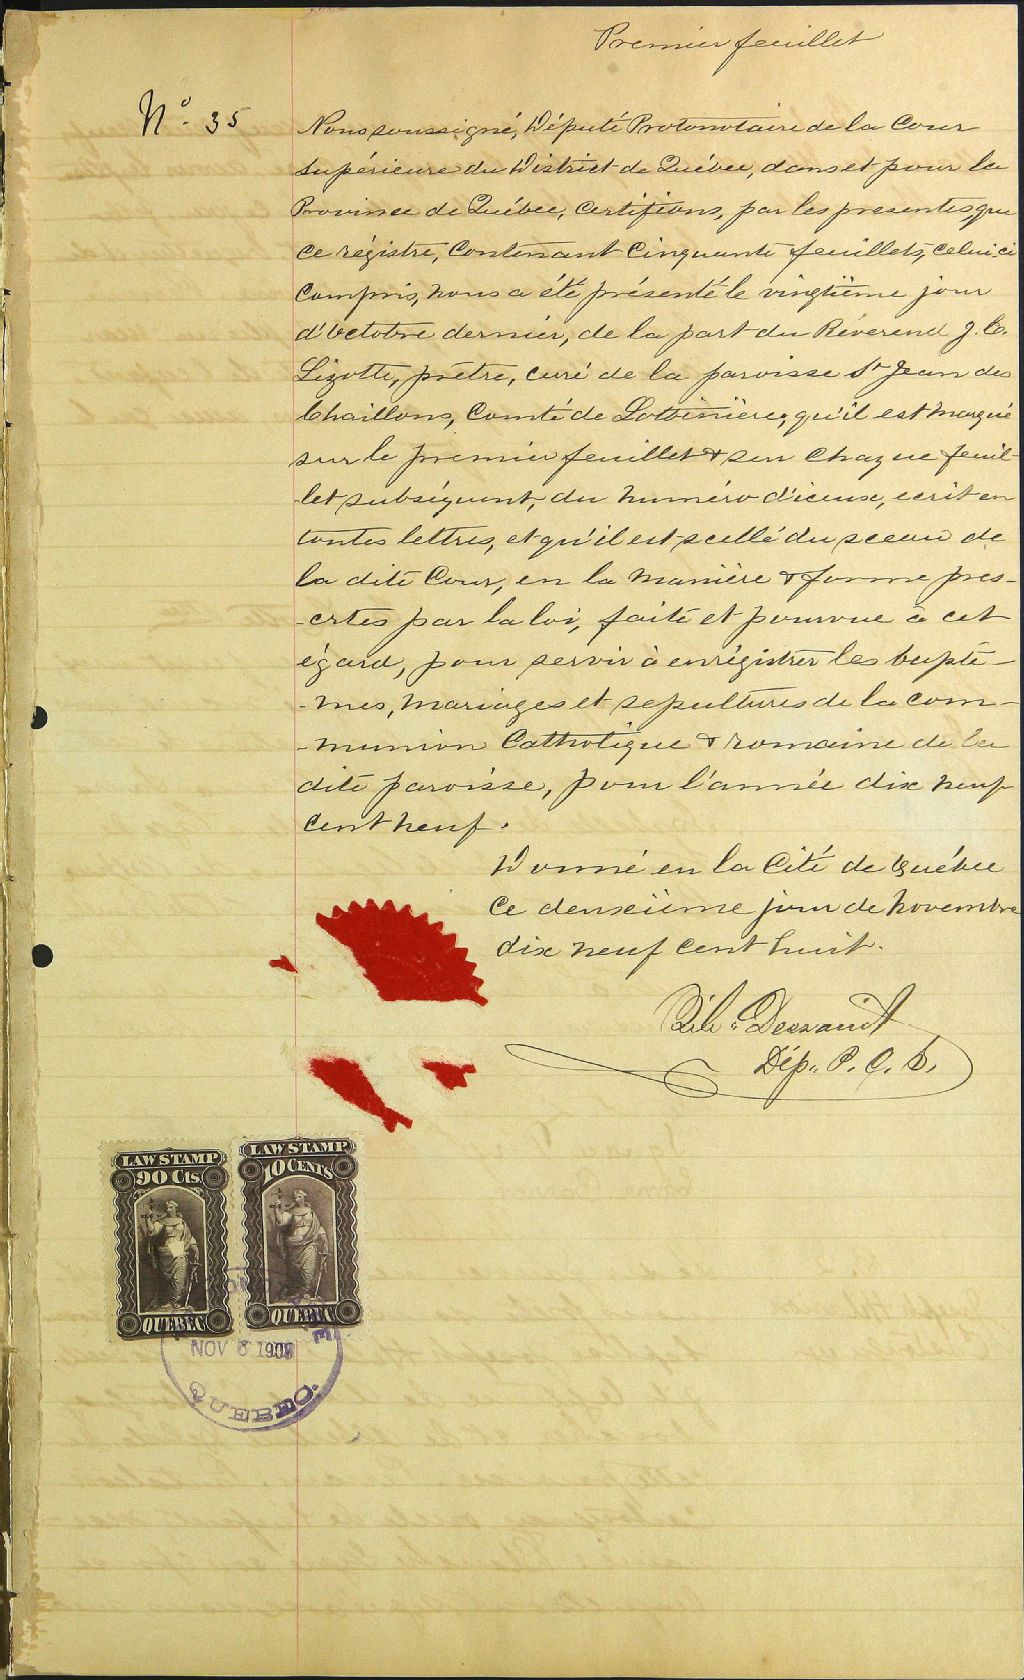 Premier feuillet
No. 35
Nous soussigné, Député Protonotaire de la Cour
Supérieure du District de Québec, dans et pour la
Province de Québec, Certifions, par les presentes, que
ce régistre, Contenant Cinquante feuillets, celui ci
Compris, nous a été présenté le vingtième jour
d'Octobre dernier, de la part du Révérend J. C.
Lizotte, prêtre, curé de la paroisse St Jean des
Chaillons, Comté de Lotbinière; qu'il est marqué
sur le premier feuillet & sur chaque feuil-
let subséquent, du numéro d'iceux, ecrit en
toutes lettres, et qu'il est scellé du sceau de
la dite Cour, en la manière & forme pres-
-crites par la loi, faite et pourvue à cet
égard, pour servir à enrégistrer les baptê-
-mes, mariages et sepultures de la com-
-munion Catholique & romaine de la
dite paroisse, pour l'année dix neuf
cent neuf.
Donné en la Cité de Québec
Ce deuxième jour de Novembre
dix neuf cent huit.
Dép. P. C. S.
LAW STAMP
90 Cts.
QUEBEC
LAW STAMP
10 CENTS
QUEBEC
NOV 6 1908
QUEBEC.